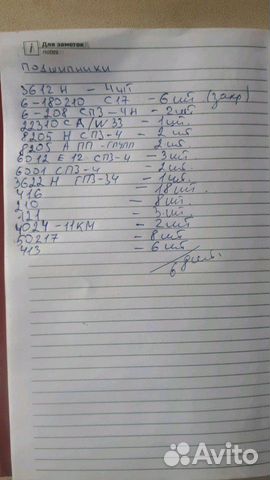 i Для заметок
notes
Подшипники
3612 Н - 4шт
6-180210 С17 - 6 шт (закр)
6-208 СПЗ-4Н - 2шт
22310 CA/W33 - 1шт.
8205 Н СПЗ-4 - 2 шт
8205 А ПП - 2 шт
6012 Е 12 СПЗ-4 - 3шт
6001 СПЗ-4 - 2шт.
3622 Н ГПЗ-34 - 1шт.
416 - 18шт.
210 - 8шт.
- 5шт.
4024-11КМ - 2шт
50217 - 8шт
413 - 6шт
Avito